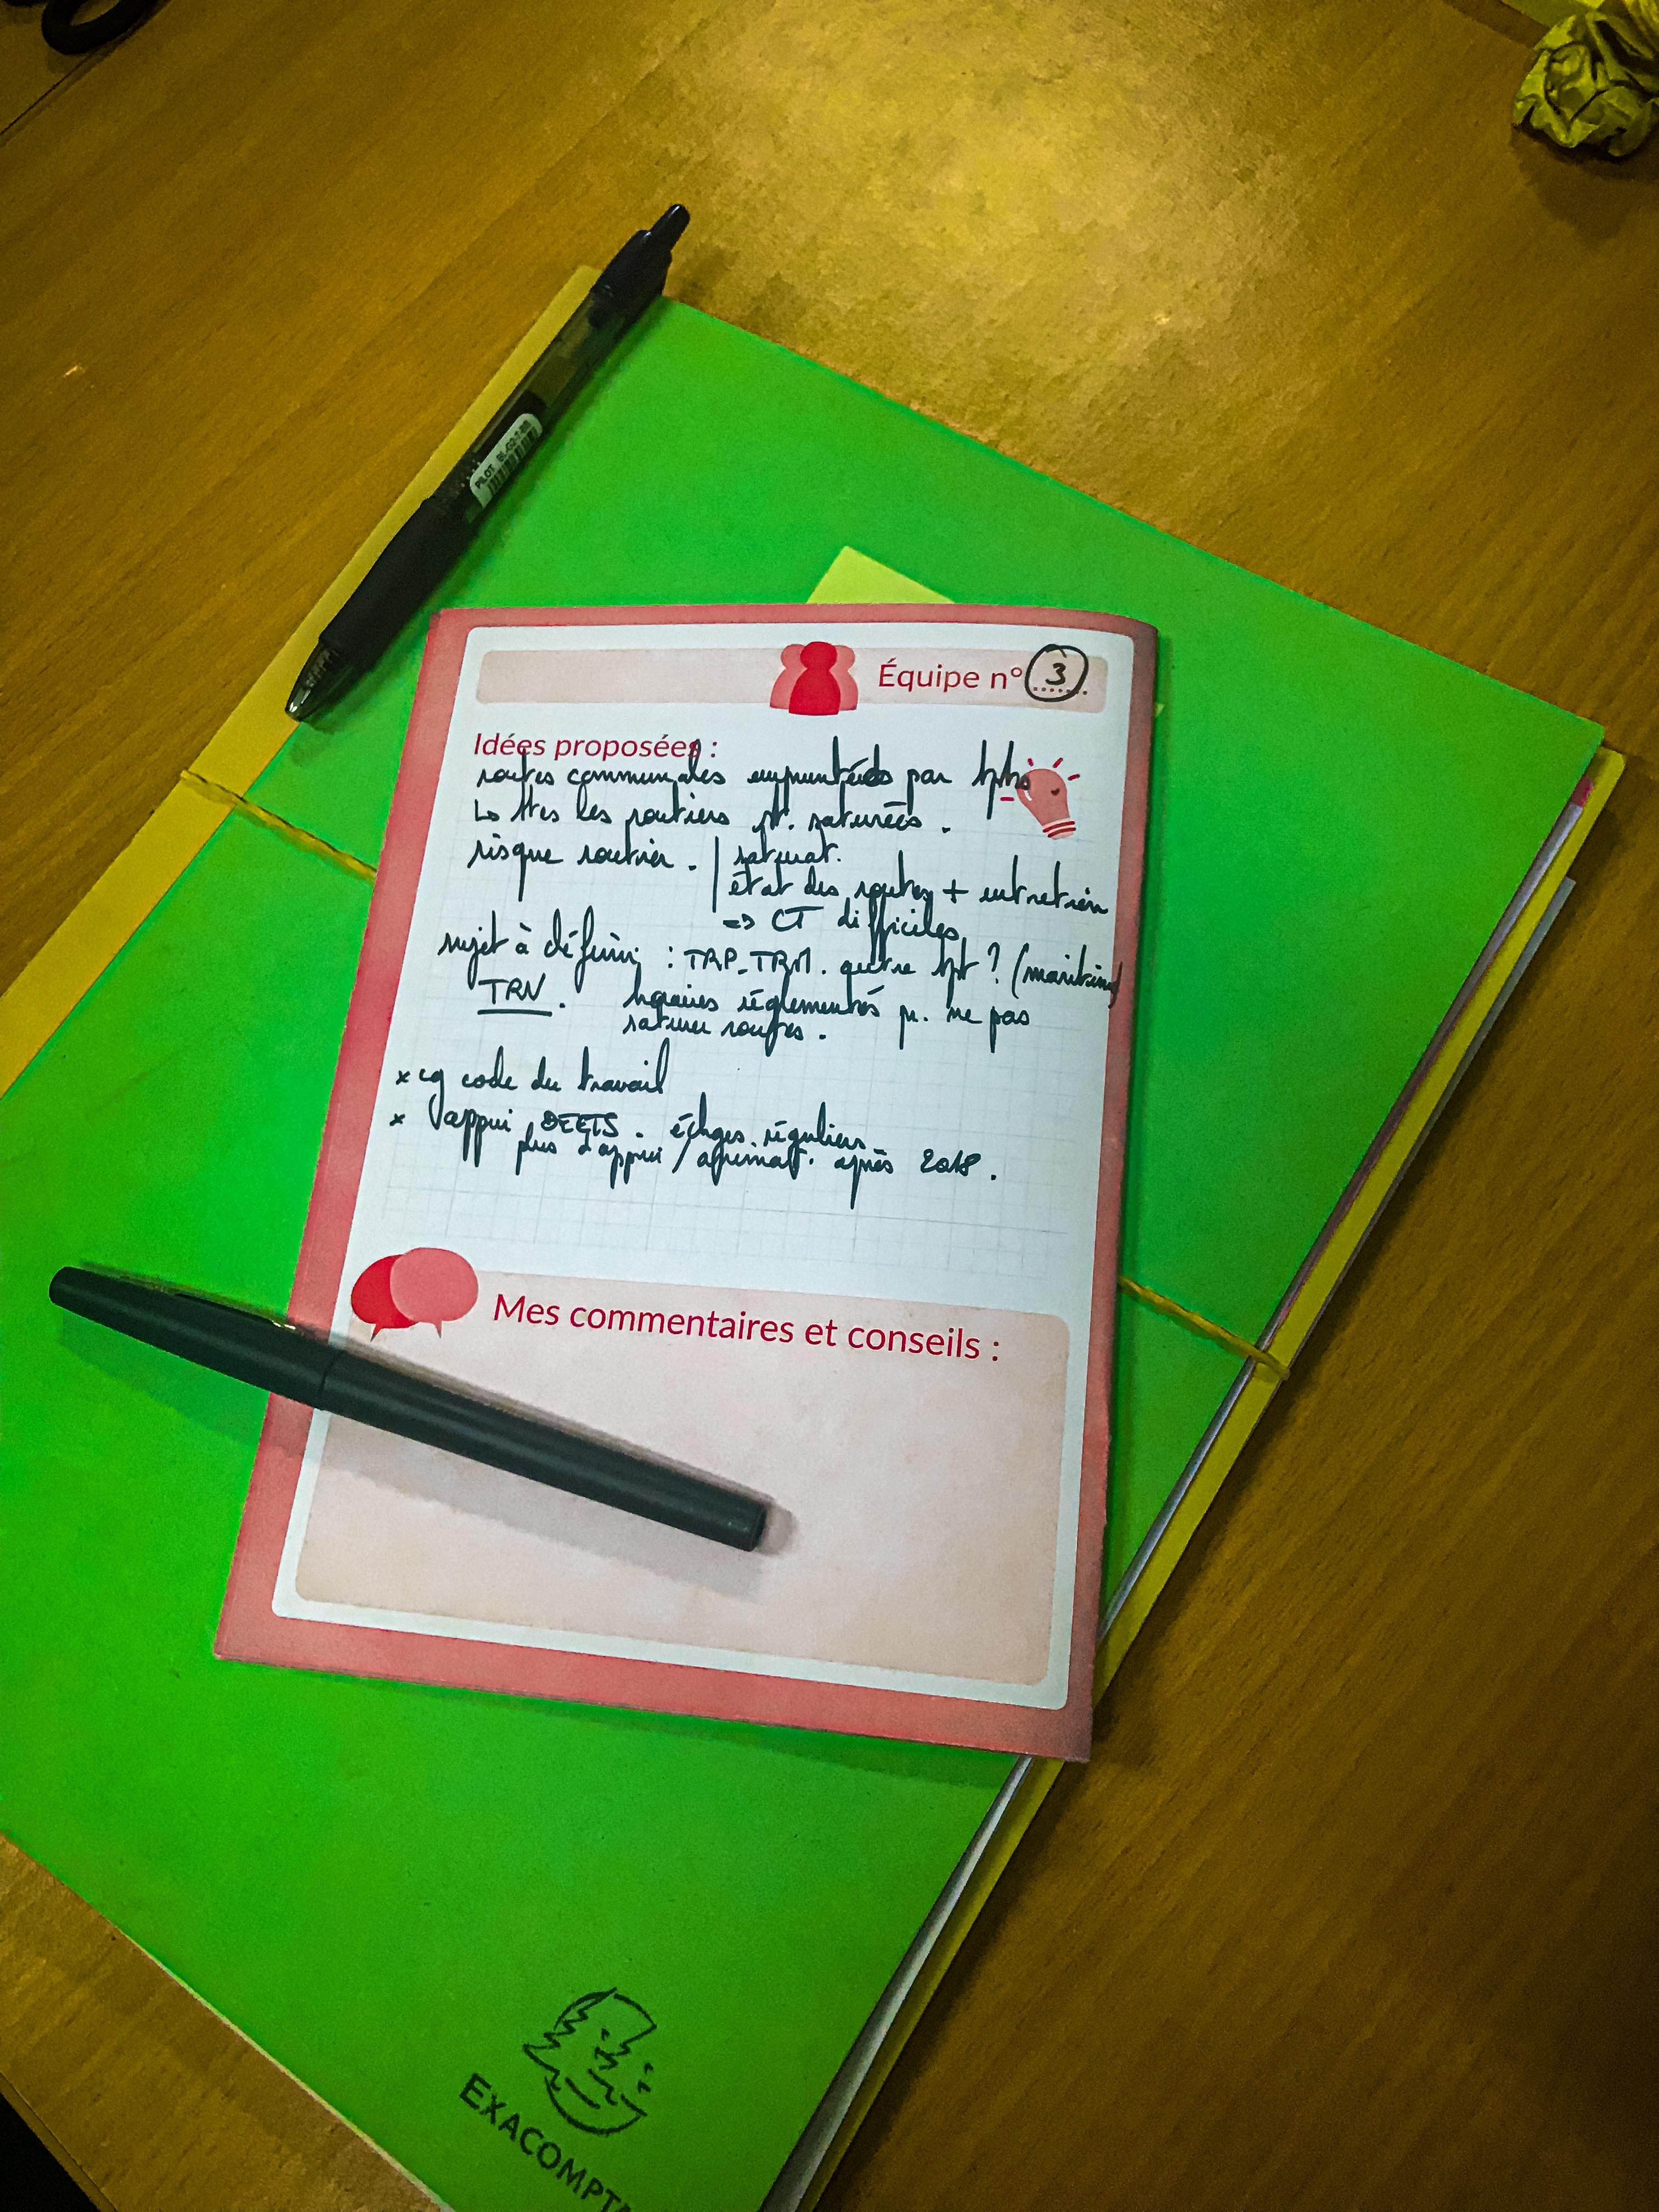 PILOT BL-G2-7-BB
Équipe n° 3
Idées proposées :
routes communales empruntées par
Lo ttes les routiers st. saturées.
risque routier. saturat.
état des routes + entretien
=> CT difficiles
sujet à définir : TRP_TRM. autre tpt ? (maritime)
TRV. horaires réglementés pr. ne pas
saturer routes.
x cq code du travail
x appui DEETS. échges. réguliers
plus d'appui / après 2018.
Mes commentaires et conseils :
EXACOMPTA